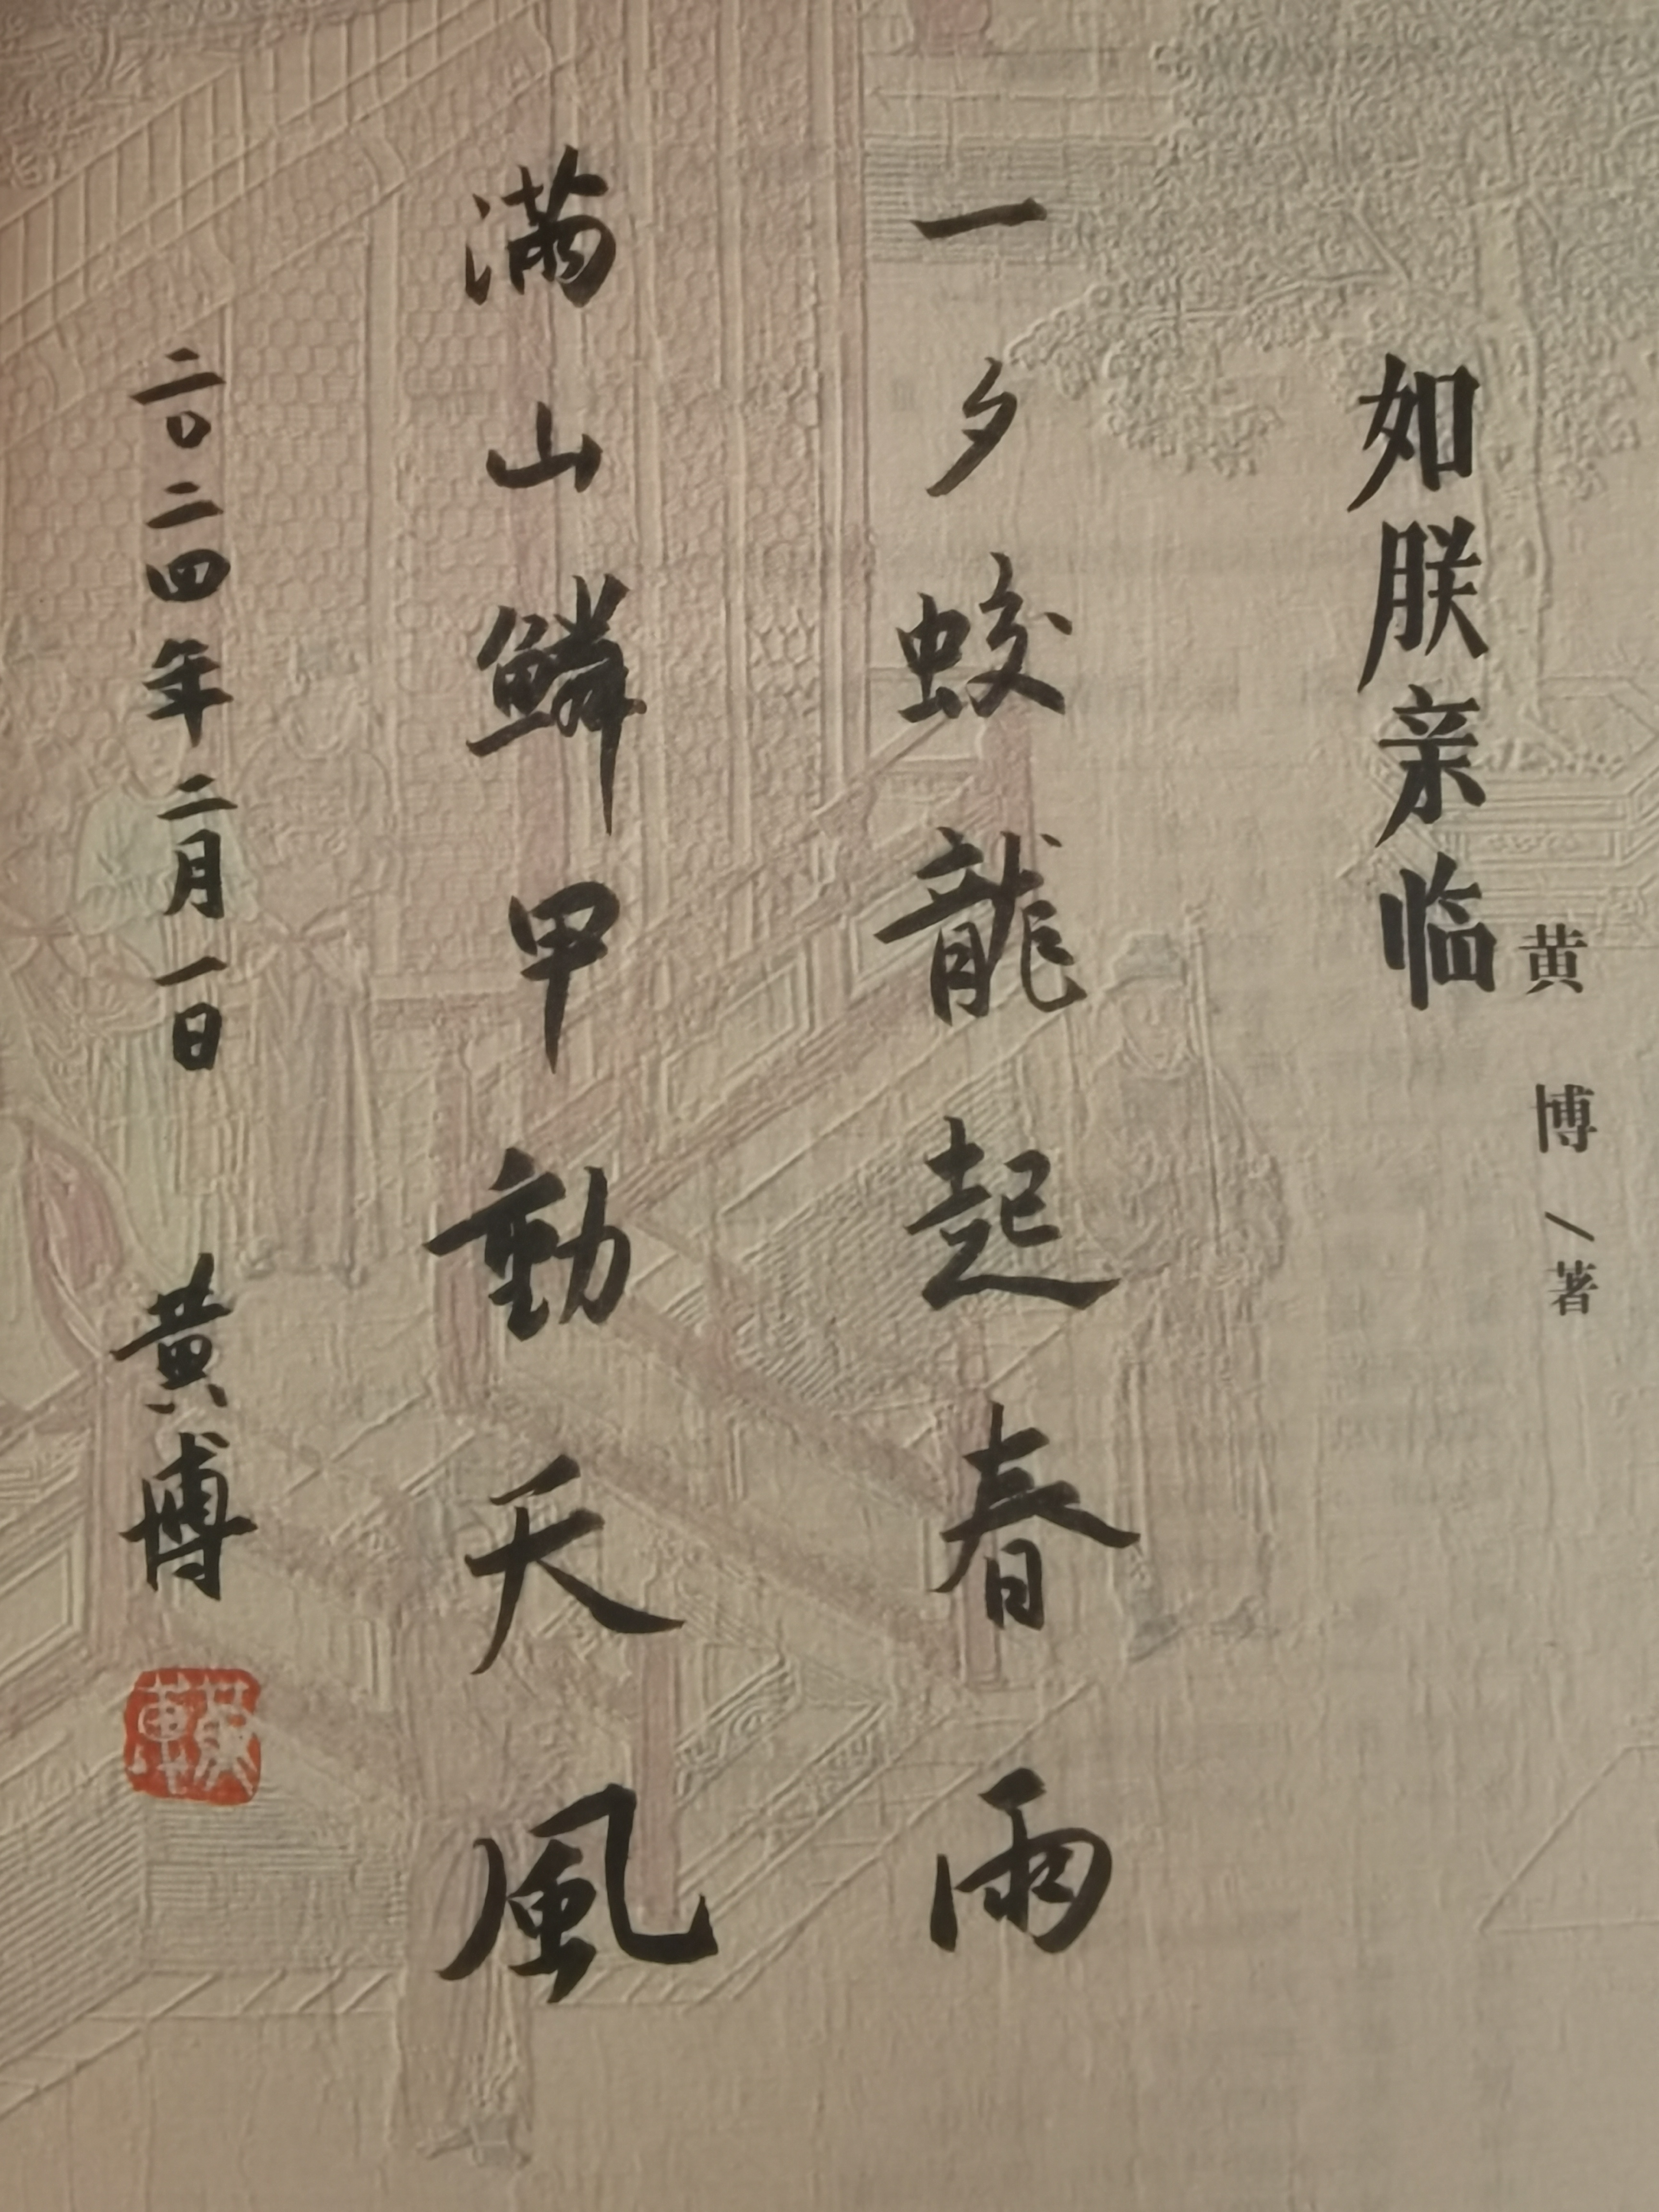 如朕亲临
黄博/著
一夕蛟龍起春雨
满山鳞甲動天風
二〇二四年二月一日 黄博